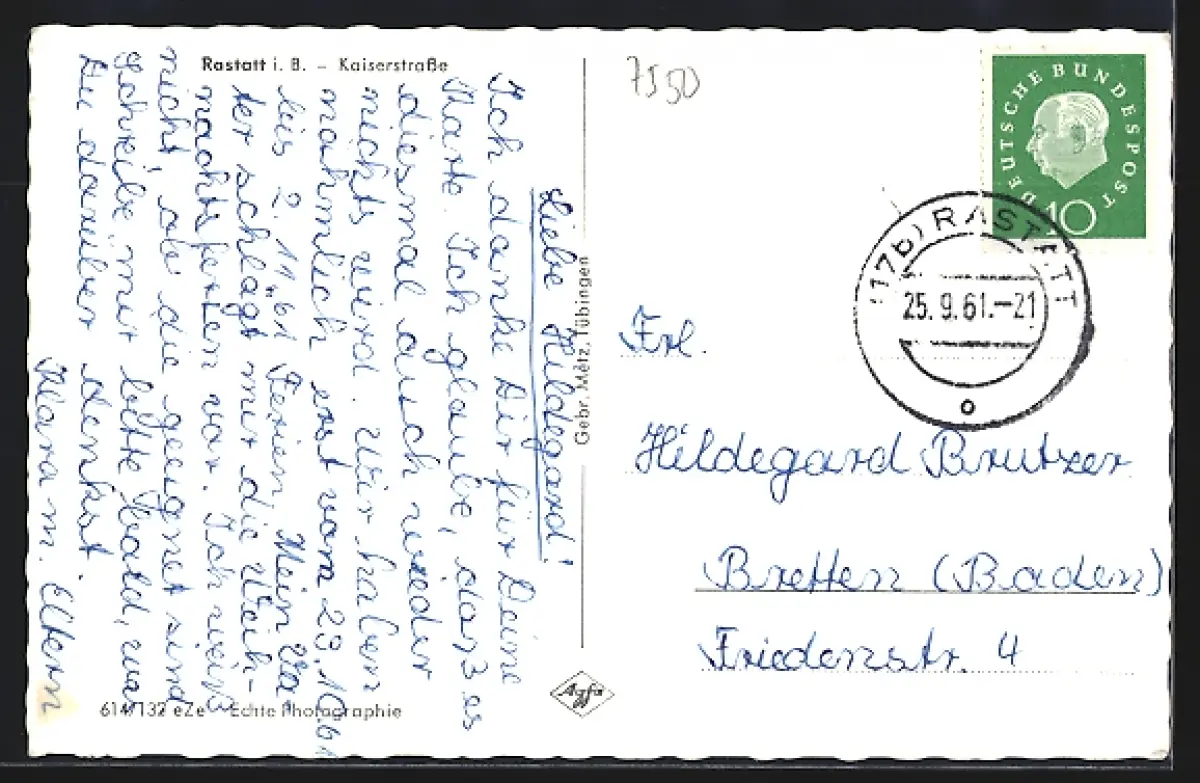 Rastatt i. B. – Kaiserstraße
Liebe Hildegard!
Ich danke Dir für Deine
Karte. Ich glaube, daß es
diesmal auch wieder
nichts wird. Wir haben
nähmlich erst vom 29.10.61
bis 2.11.61 Ferien. Mein Va-
ter schlägt mir die Weih-
nachtsferien vor. Ich weiß
nicht, ob die geeignet sind
Schreibe mir bitte bald, was
Du darüber denkst.
Klara m. Eltern
614/132 eZe Echte Photographie
Gebr. Metz, Tübingen
Agfa
7550
DEUTSCHE BUNDESPOST
10
(17b) RASTATT
25.9.61.–21
o
Frl.
Hildegard Brutzer
Bretten (Baden)
Friedenstr. 4